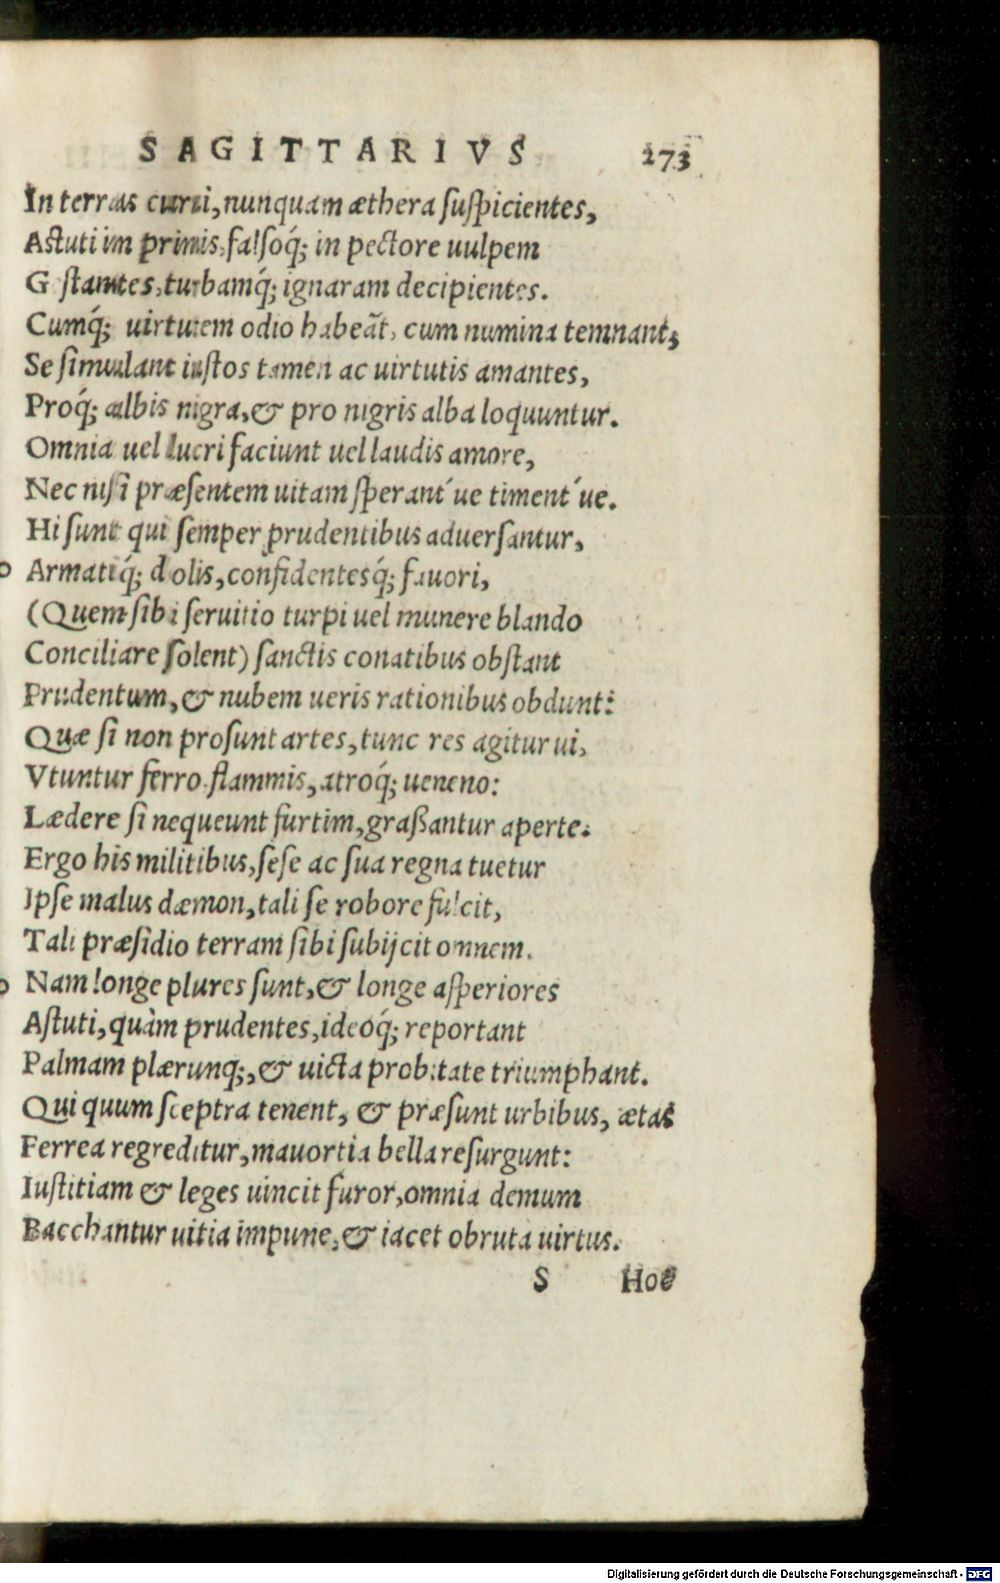 SAGITTARIVS 273
In terras curui, nunquam æthera suspicientes,
Astuti im primis, falsoq́; in pectore uulpem
Gestantes, turbamq́; ignaram decipientes.
Cumq́; uirtutem odio habeãt, cum numina temnant,
Se simulant iustos tamen ac uirtutis amantes,
Proq́; albis nigra, & pro nigris alba loquuntur.
Omnia uel lucri faciunt uel laudis amore,
Nec nisi præsentem uitam sperant´ue timent´ue.
Hi sunt qui semper prudentibus aduersantur,
Armatiq́; dolis, confidentesq́; fauori,
(Quem sibi seruitio turpi uel munere blando
Conciliare solent) sanctis conatibus obstant
Prudentum, & nubem ueris rationibus obdunt:
Quæ si non prosunt artes, tunc res agitur ui,
Vtuntur ferro, flammis, atroq́; ueneno:
Lædere si nequeunt furtim, graßantur aperte.
Ergo his militibus, sese ac sua regna tuetur
Ipse malus dæmon, tali se robore fulcit,
Tali præsidio terram sibi subijcit omnem.
Nam longe plures sunt, & longe asperiores
Astuti, quàm prudentes, ideoq́; reportant
Palmam plærunq;, & uicta probitate triumphant.
Qui quum sceptra tenent, & præsunt urbibus, ætas
Ferrea regreditur, mauortia bella resurgunt:
Iustitiam & leges uincit furor, omnia demum
Bacchantur uitia impune, & iacet obruta uirtus.
S Hoc
Digitalisierung gefördert durch die Deutsche Forschungsgemeinschaft - DFG